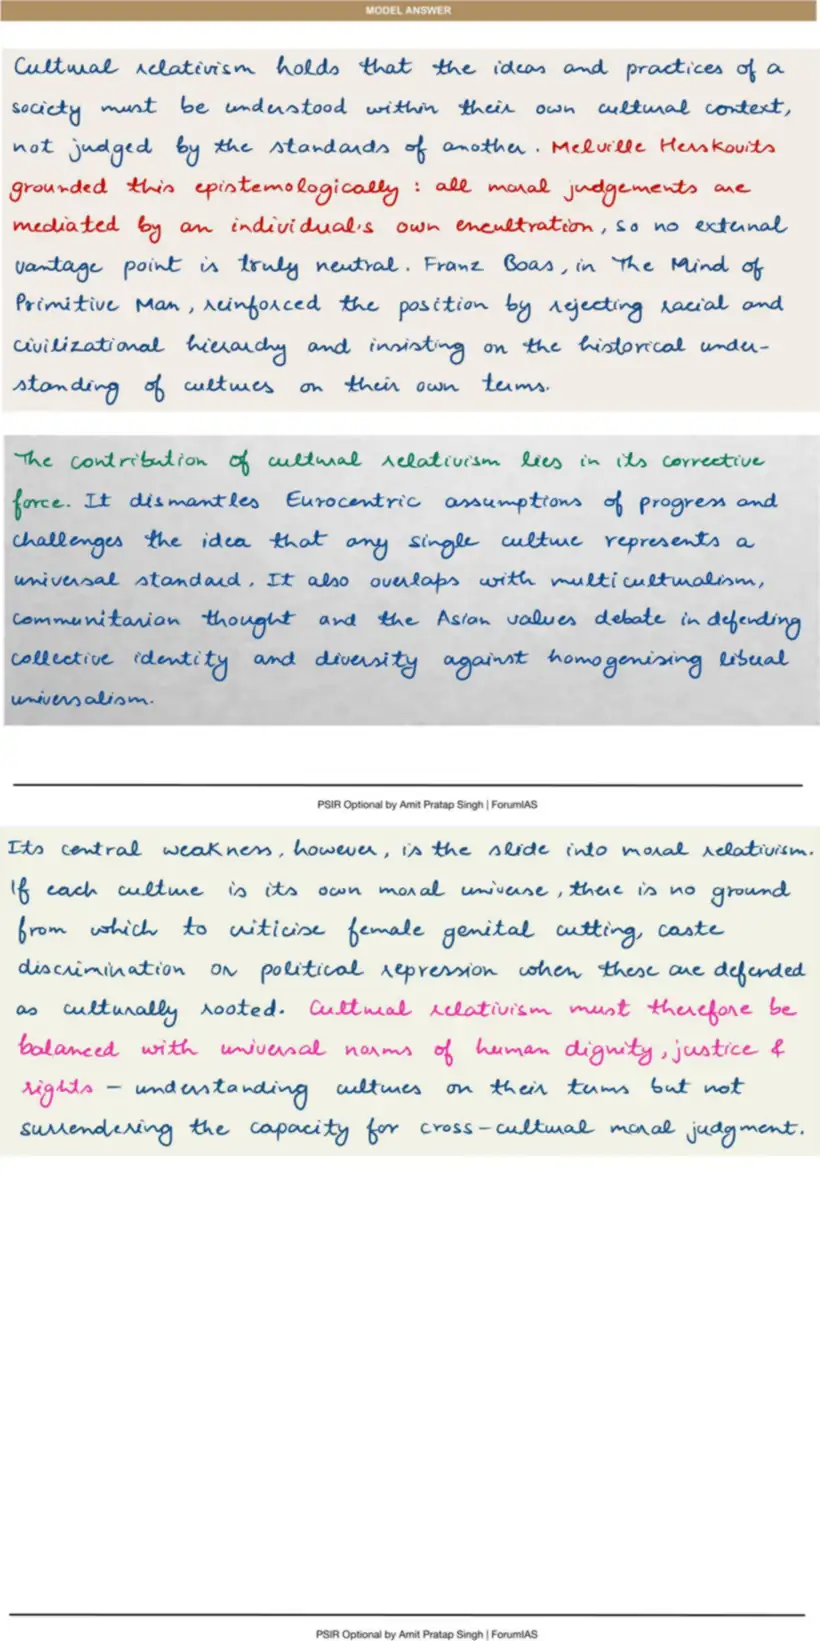 MODEL ANSWER
Cultural relativism holds that the ideas and practices of a
society must be understood within their own cultural context,
not judged by the standards of another. Melville Herskovits
grounded this epistemologically : all moral judgements are
mediated by an individual's own encultration, so no external
vantage point is truly neutral. Franz Boas, in The Mind of
Primitive Man, reinforced the position by rejecting racial and
civilizational hierarchy and insisting on the historical under-
standing of cultures on their own terms.
The contribution of cultural relativism lies in its corrective
force. It dismantles Eurocentric assumptions of progress and
challenges the idea that any single culture represents a
universal standard. It also overlaps with multiculturalism,
communitarian thought and the Asian values debate in defending
collective identity and diversity against homogenising liberal
universalism.
PSIR Optional by Amit Pratap Singh | ForumIAS
Its central weakness, however, is the slide into moral relativism.
If each culture is its own moral universe, there is no ground
from which to criticise female genital cutting, caste
discrimination or political repression when these are defended
as culturally rooted. Cultural relativism must therefore be
balanced with universal norms of human dignity, justice &
rights – understanding cultures on their terms but not
surrendering the capacity for cross-cultural moral judgment.
PSIR Optional by Amit Pratap Singh | ForumIAS